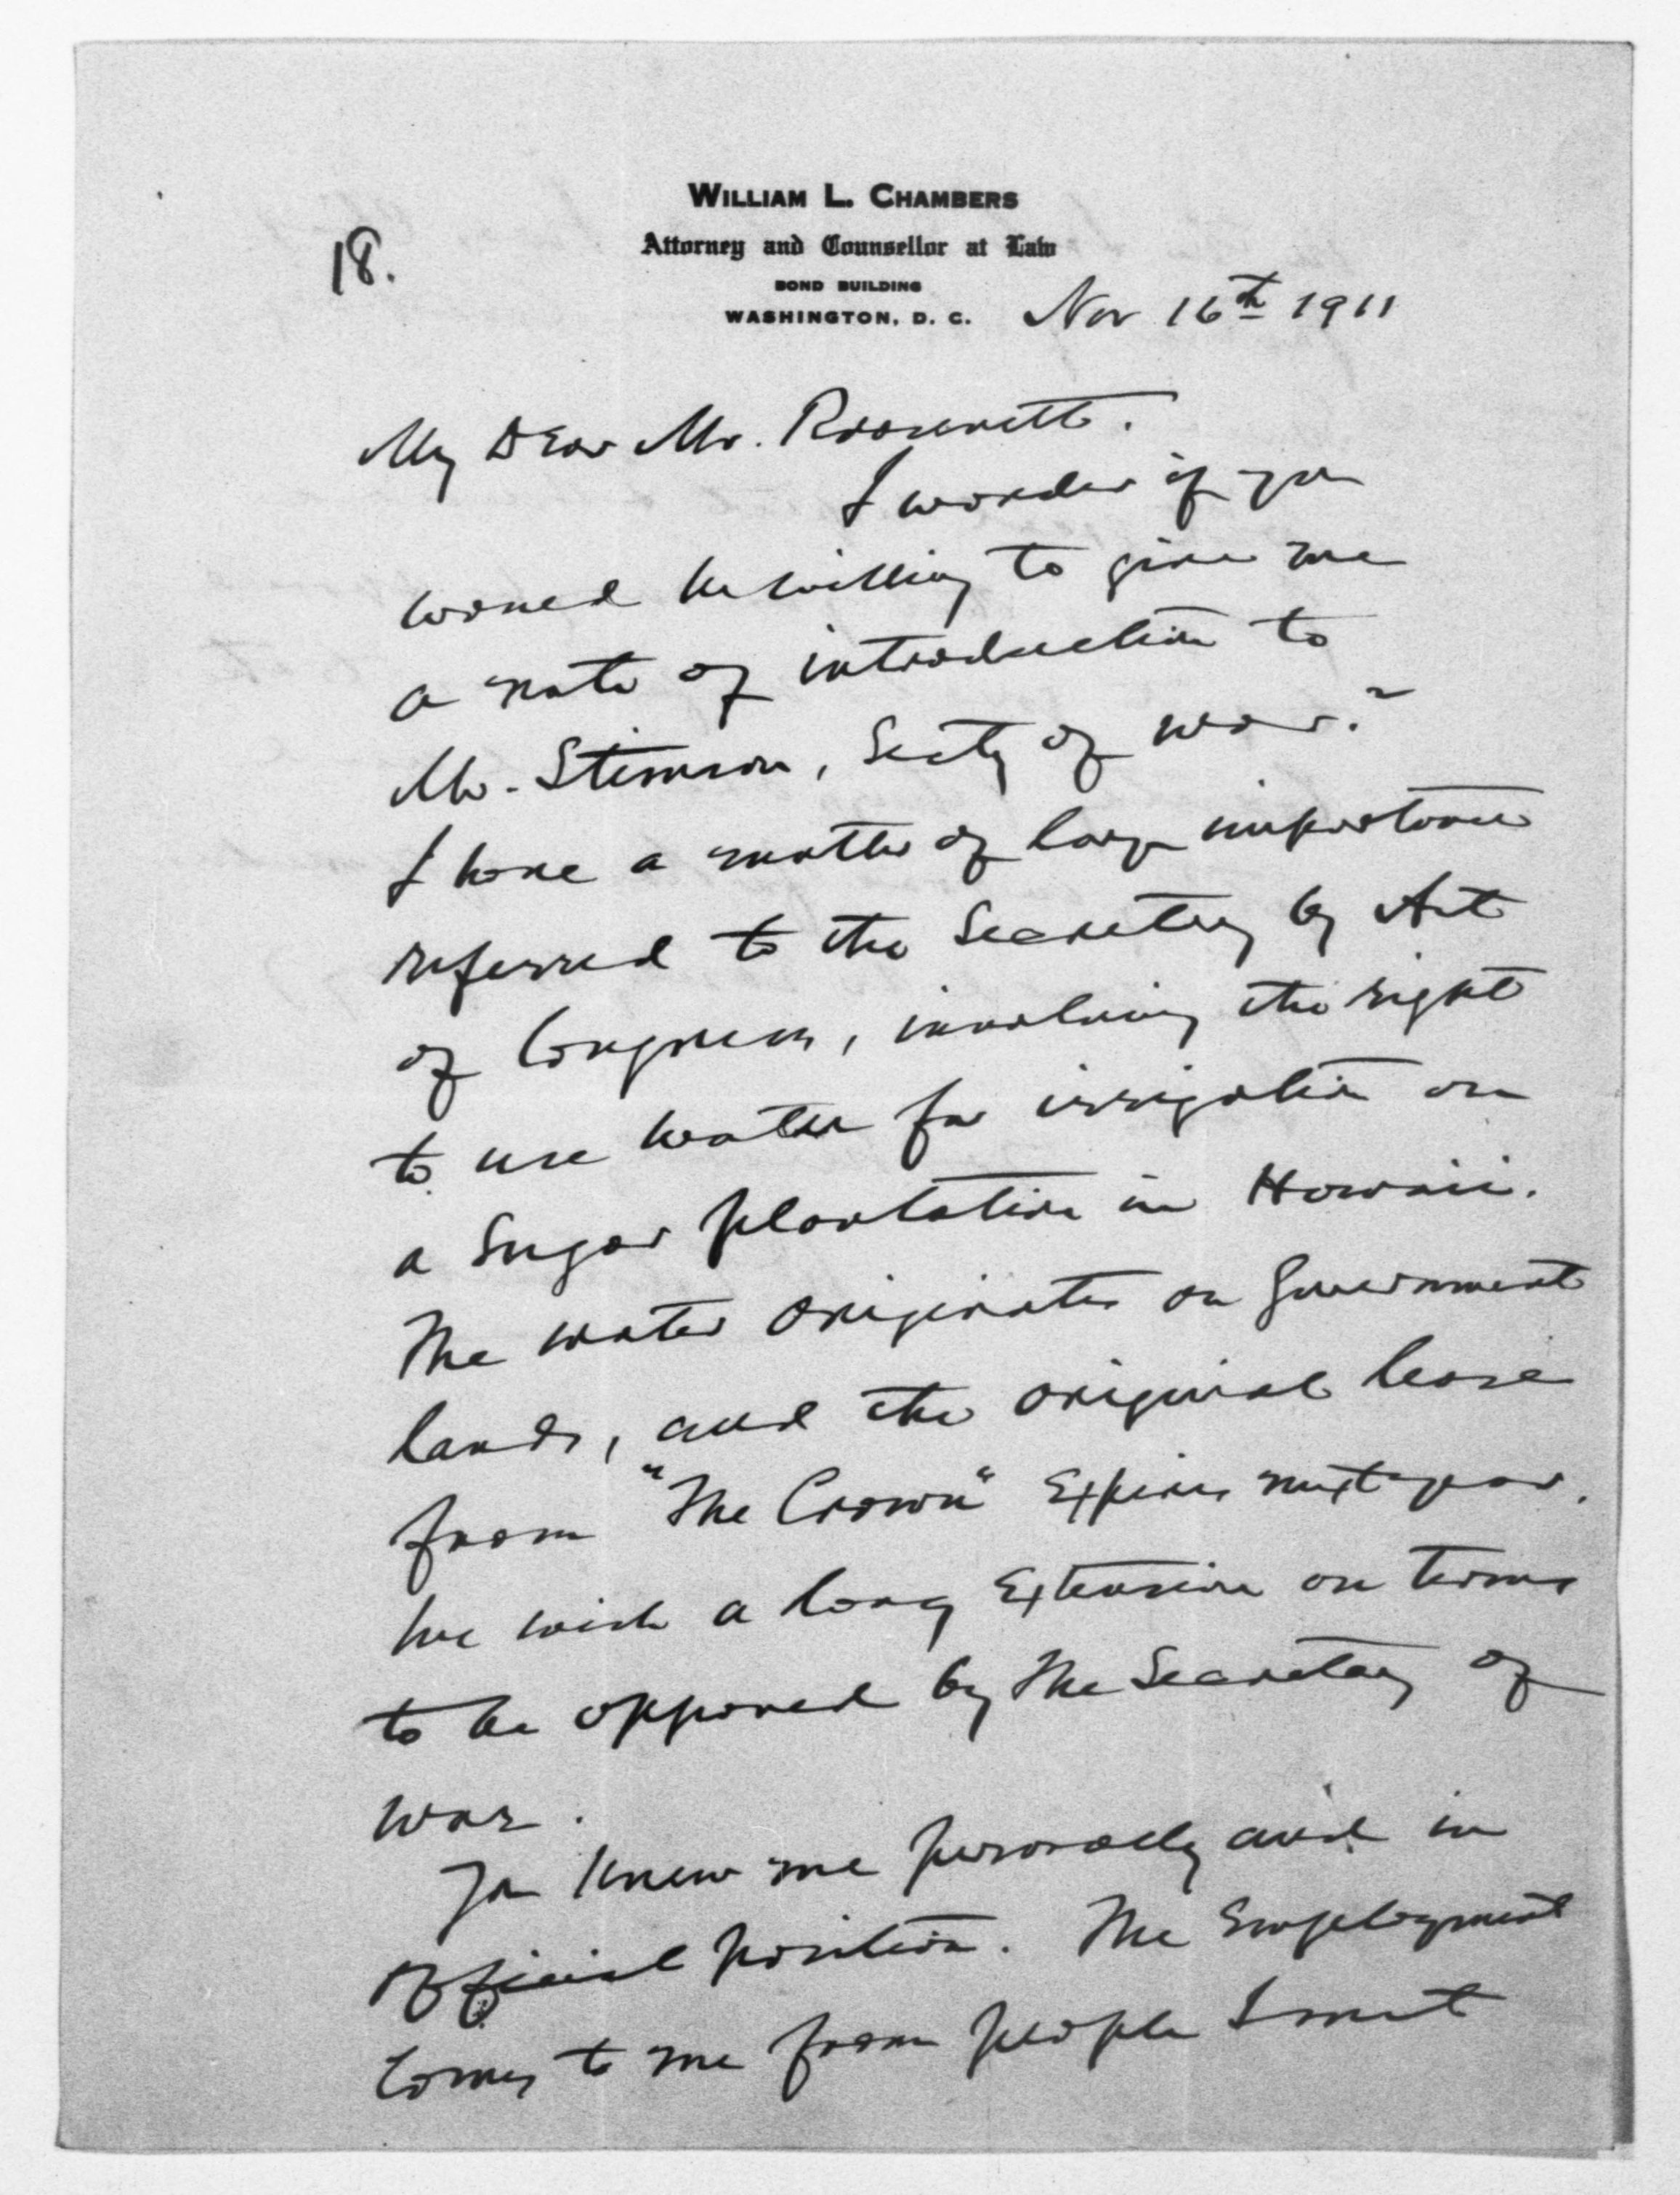 WILLIAM L. CHAMBERS
Attorney and Counsellor at Law
BOND BUILDING
WASHINGTON, D. C.
Nov 16th 1911
18.
My Dear Mr. Roosevelt.
I wonder if you
would be willing to give me
a note of introduction to
Mr. Stimson, Secty of War.?
I have a matter of large importance
referred to the Secretary by Act
of Congress, involving the right
to use water for irrigation on
a Sugar plantation in Hawaii.
The water originates on Government
lands, and the original lease
from "The Crown" Expires next year.
We wish a long Extension on terms
to be approved by The Secretary of
War.
You knew me personally and in
official position. The Employment
comes to me from people I met